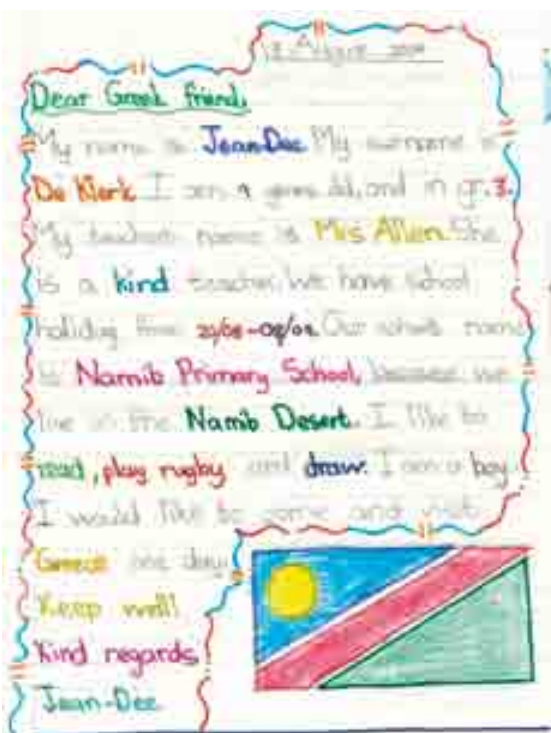 August
Dear Greek friend,
My name is Jean-Dee. My surname is
De Klerk. I am 9 years old, and in gr. 3.
My teachers name is Mrs Allen. She
is a kind teacher. We have school
holiday from Our schools name
is Namib Primary School, because we
live in the Namib Desert. I like to
read, play rugby and draw. I am a boy.
I would like to come and visit
Greece one day.
Keep well!
Kind regards,
Jean-Dee